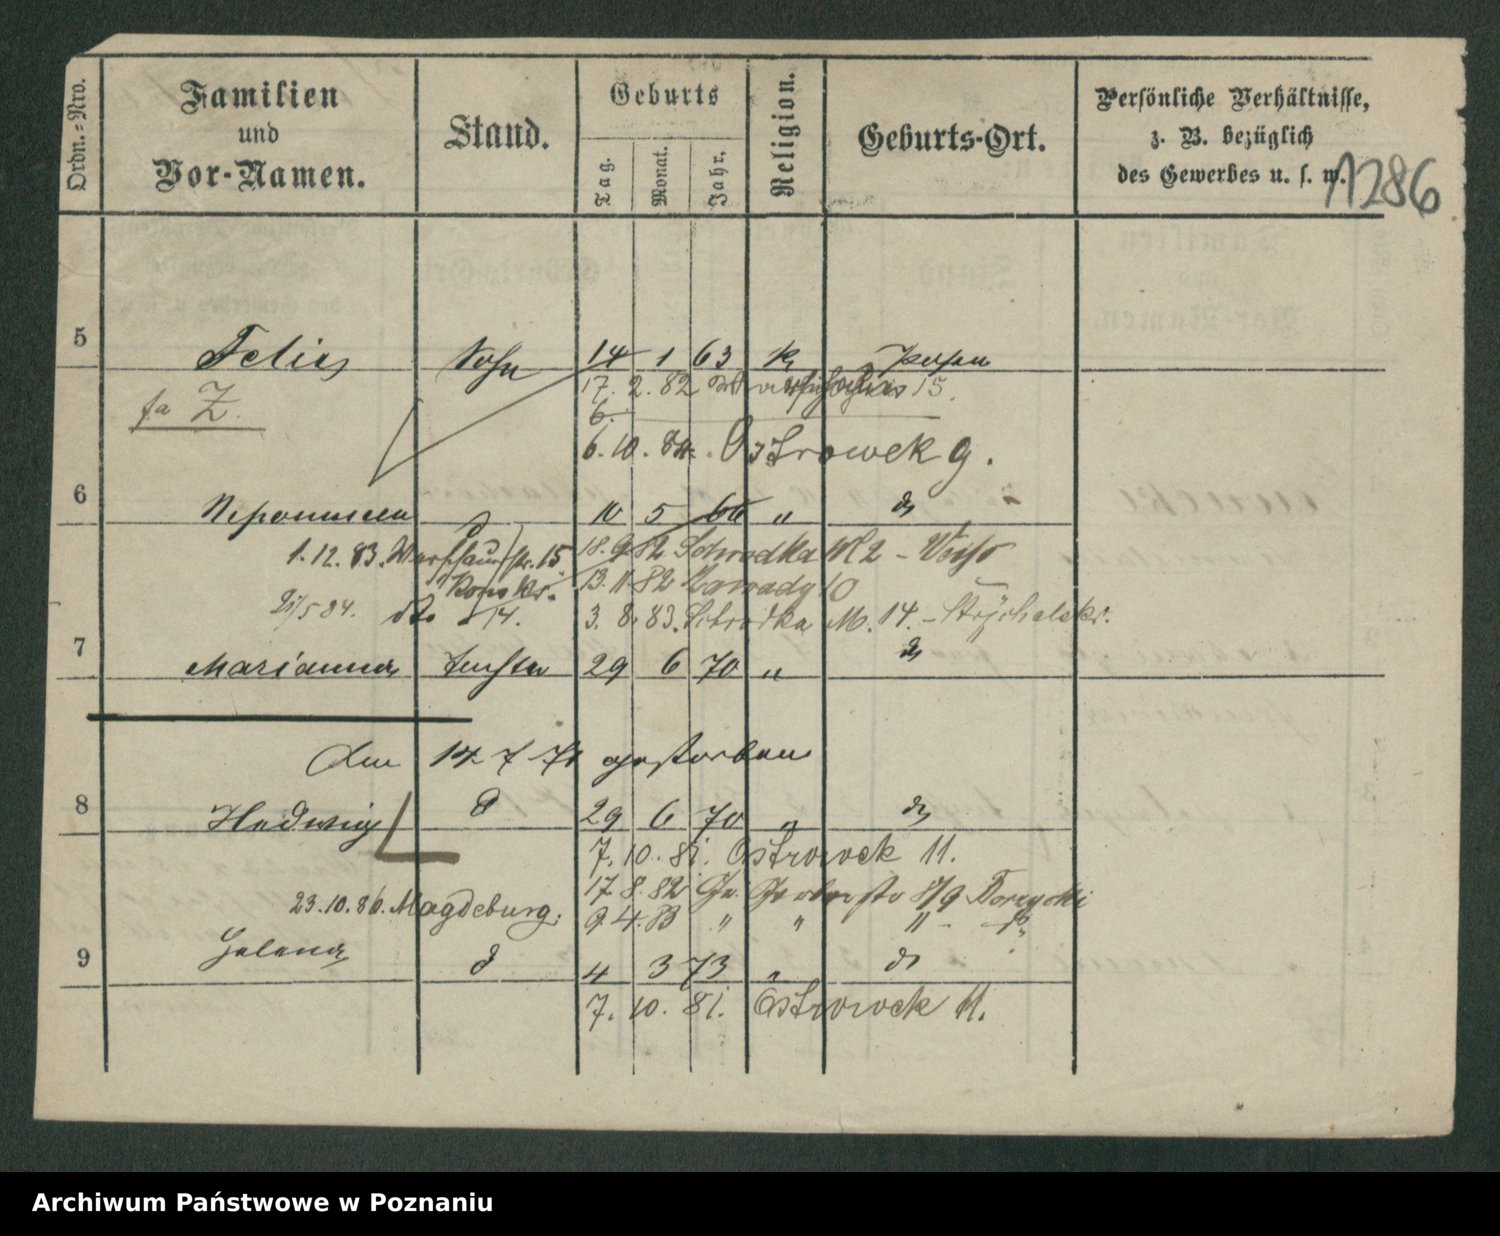 Ordn.=Nro.
Familien
und
Vor-Namen.
Stand.
Geburts
Tag.
Monat.
Jahr.
Religion.
Geburts-Ort.
Persönliche Verhältnisse,
z. B. bezüglich
des Gewerbes u. s. w.
1286
5 Felix Sohn 14 1 63 k Posen
17. 2. 82 15.
fa Z.
6.
6. 10. 84. Ostrowek 9.
6 Nepomucen d 10 5 66 " do
1. 12. 83. Warschauerstr. 15. 18. 9 82 Schrodka M 2 -
13. 11 82 Zawady 10
21/5 84. do 14. 3. 8. 83. Schrodka M. 14. -
7 Marianna Tochter 29 6 70 " do
Am 14 7 71 gestorben
8 Hedwig d 29 6 70 " do
7. 10. 81. Ostrowek 11.
17. 8. 82 8/9
23. 10. 86. Magdeburg. 9. 4. 83 " " " -
9 Helena d 4 3 73 " do
7. 10. 81. Ostrowek 11.
Archiwum Państwowe w Poznaniu